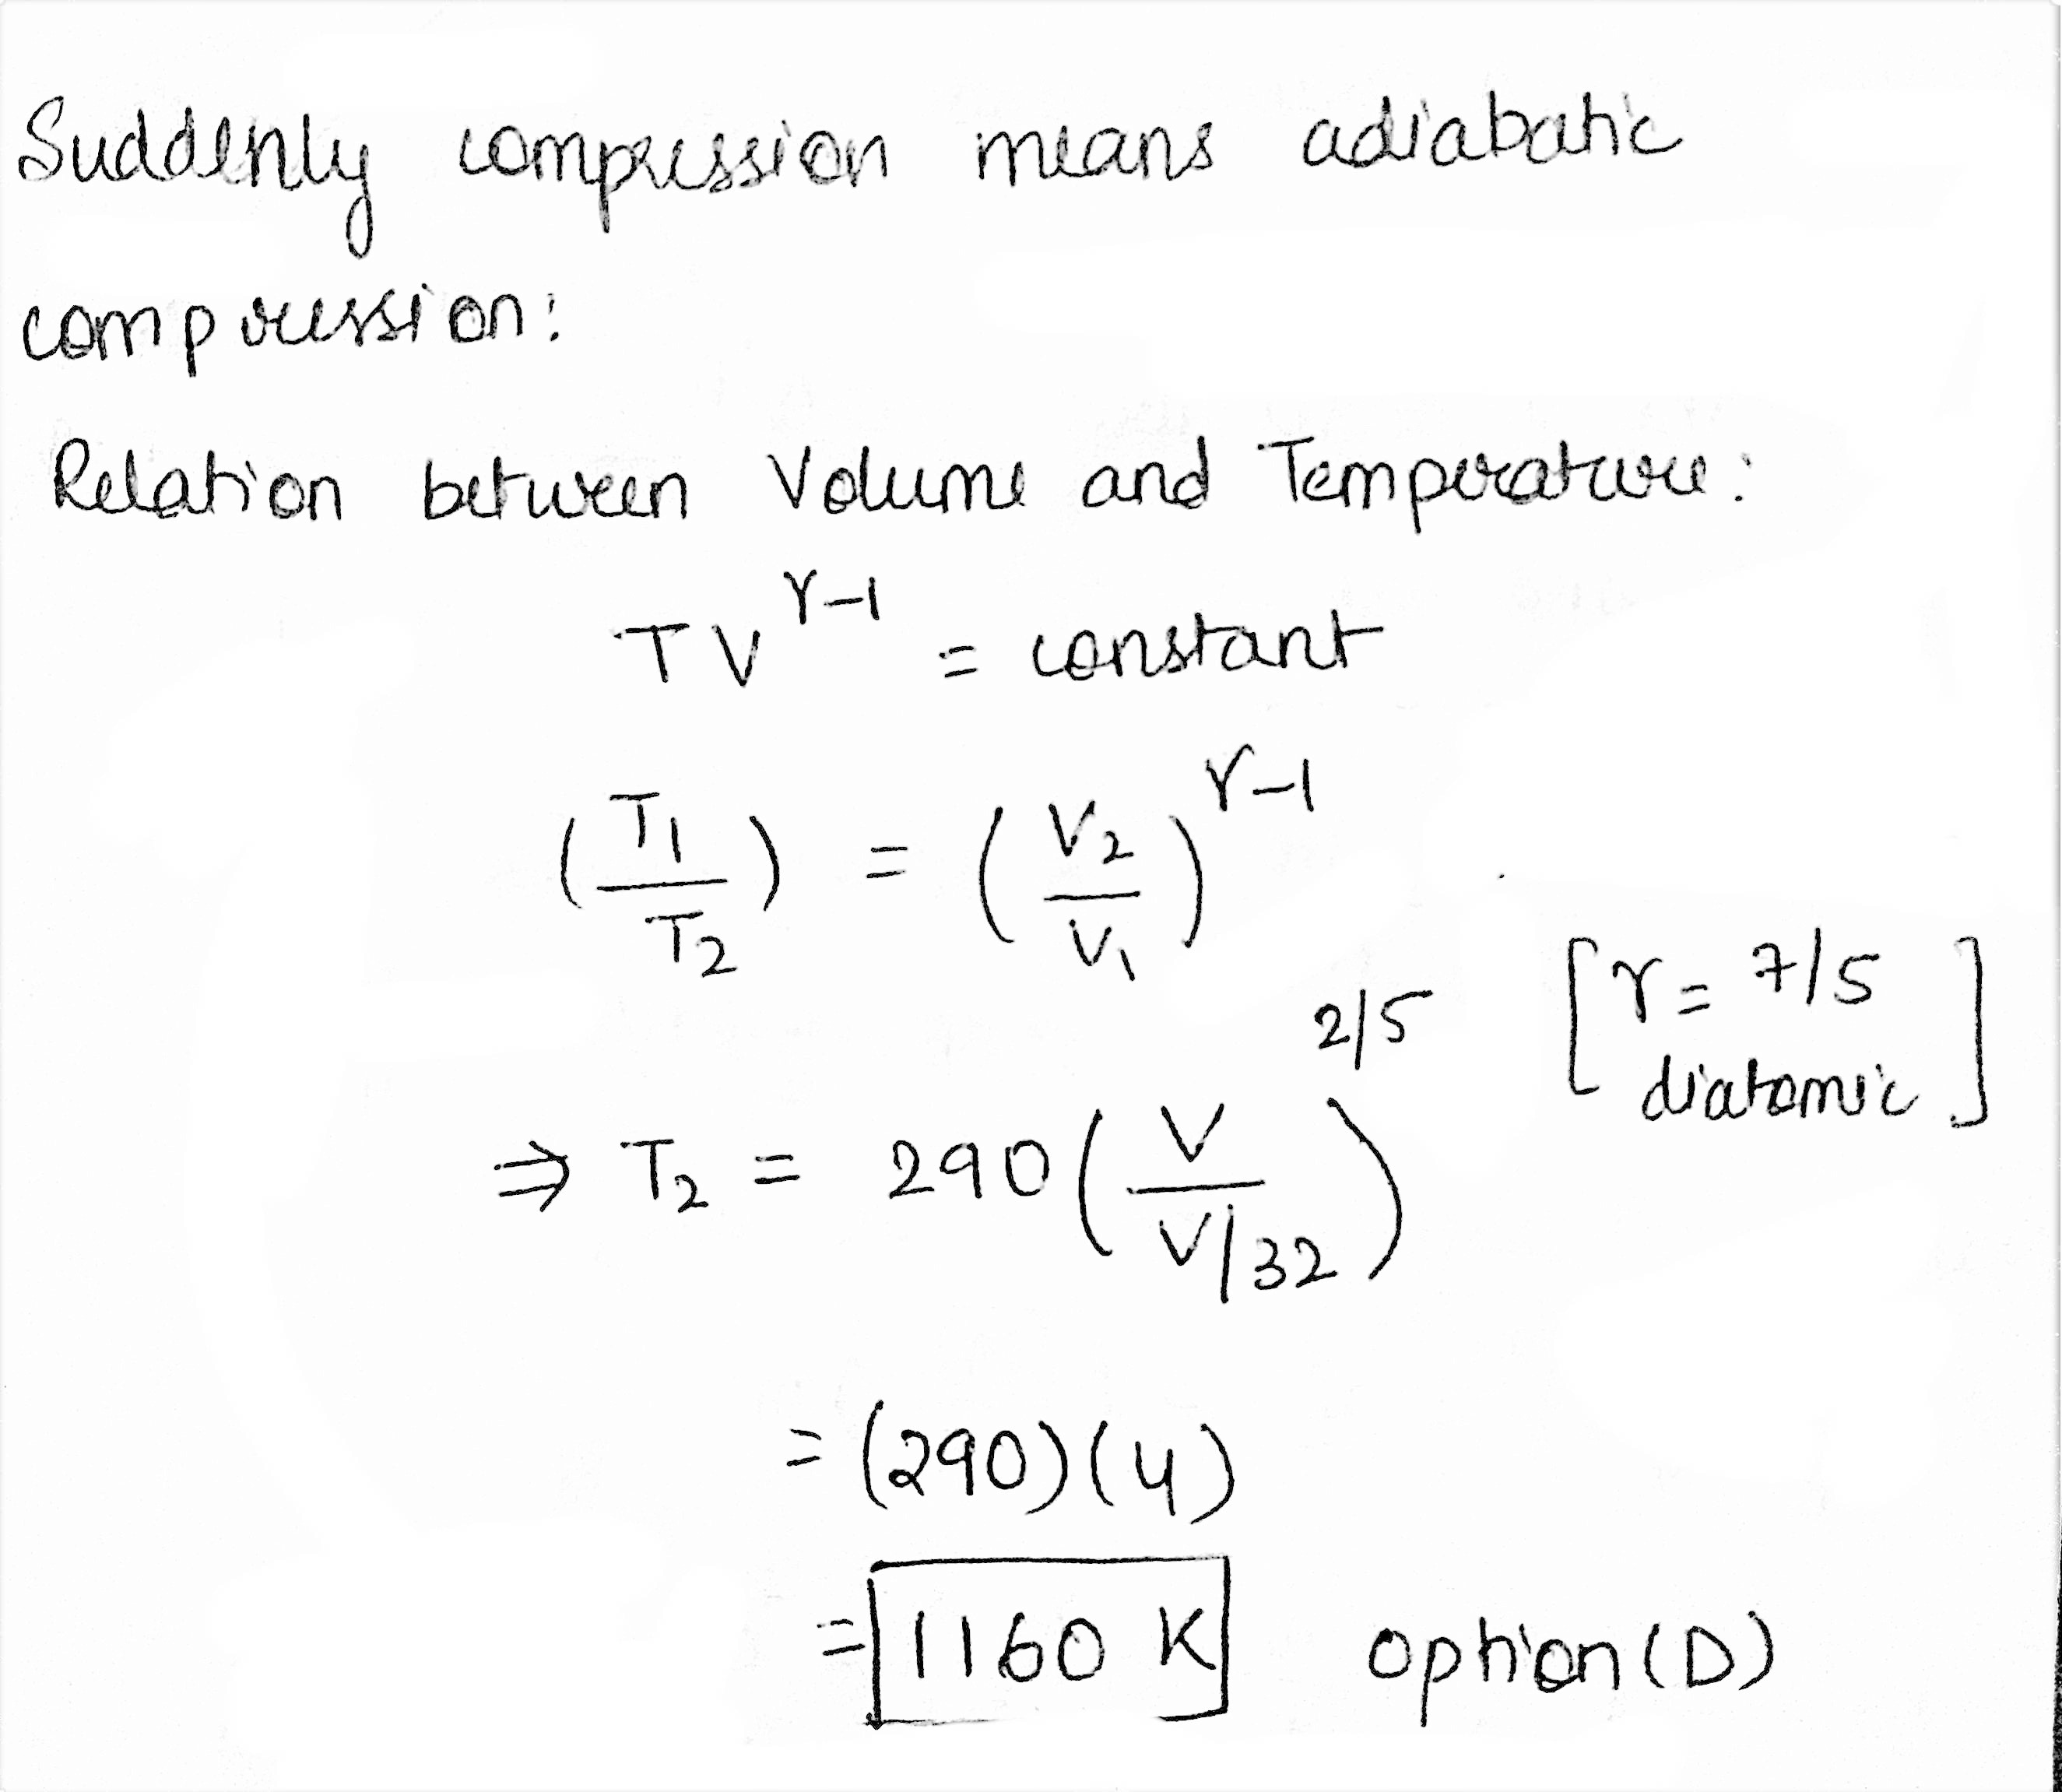 Suddenly compression means adiabatic
compression:
Relation between Volume and Temperature:
TV^(γ-1) = constant
(T₁/T₂) = (V₂/V₁)^(γ-1)
[γ = 7/5
diatomic]
⇒ T₂ = 290(V/(V/32))^(2/5)
= (290)(4)
= 1160 K option (D)